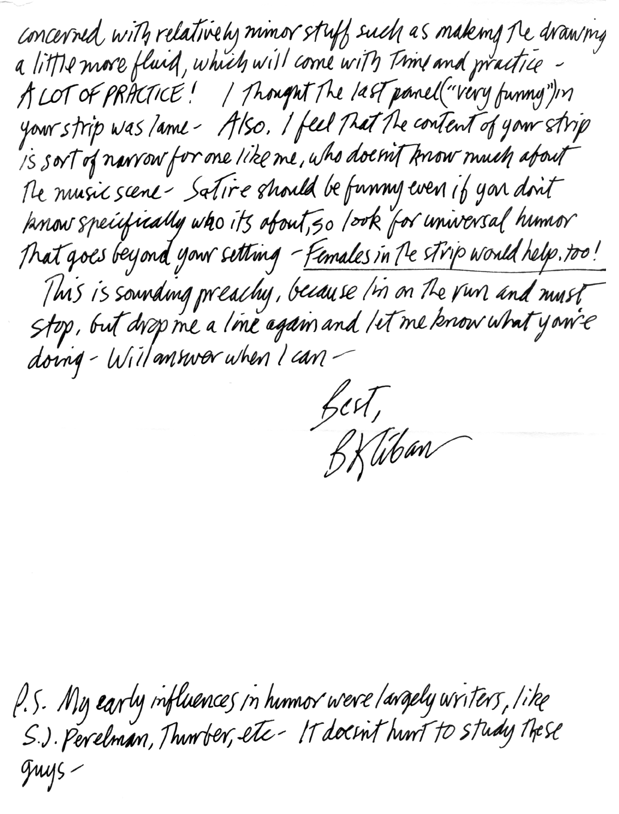 concerned with relatively minor stuff such as making the drawing
a little more fluid, which will come with time and practice -
A LOT OF PRACTICE! I thought the last panel ("very funny") in
your strip was lame - Also, I feel that the content of your strip
is sort of narrow for one like me, who doesn't know much about
the music scene - Satire should be funny even if you don't
know specifically who its about, so look for universal humor
that goes beyond your setting - Females in the strip would help, too!
This is sounding preachy, because I'm on the run and must
stop, but drop me a line again and let me know what you're
doing - Will answer when I can -
Best,
B Kliban
P.S. My early influences in humor were largely writers, like
S.J. Perelman, Thurber, etc - It doesn't hurt to study these
guys -